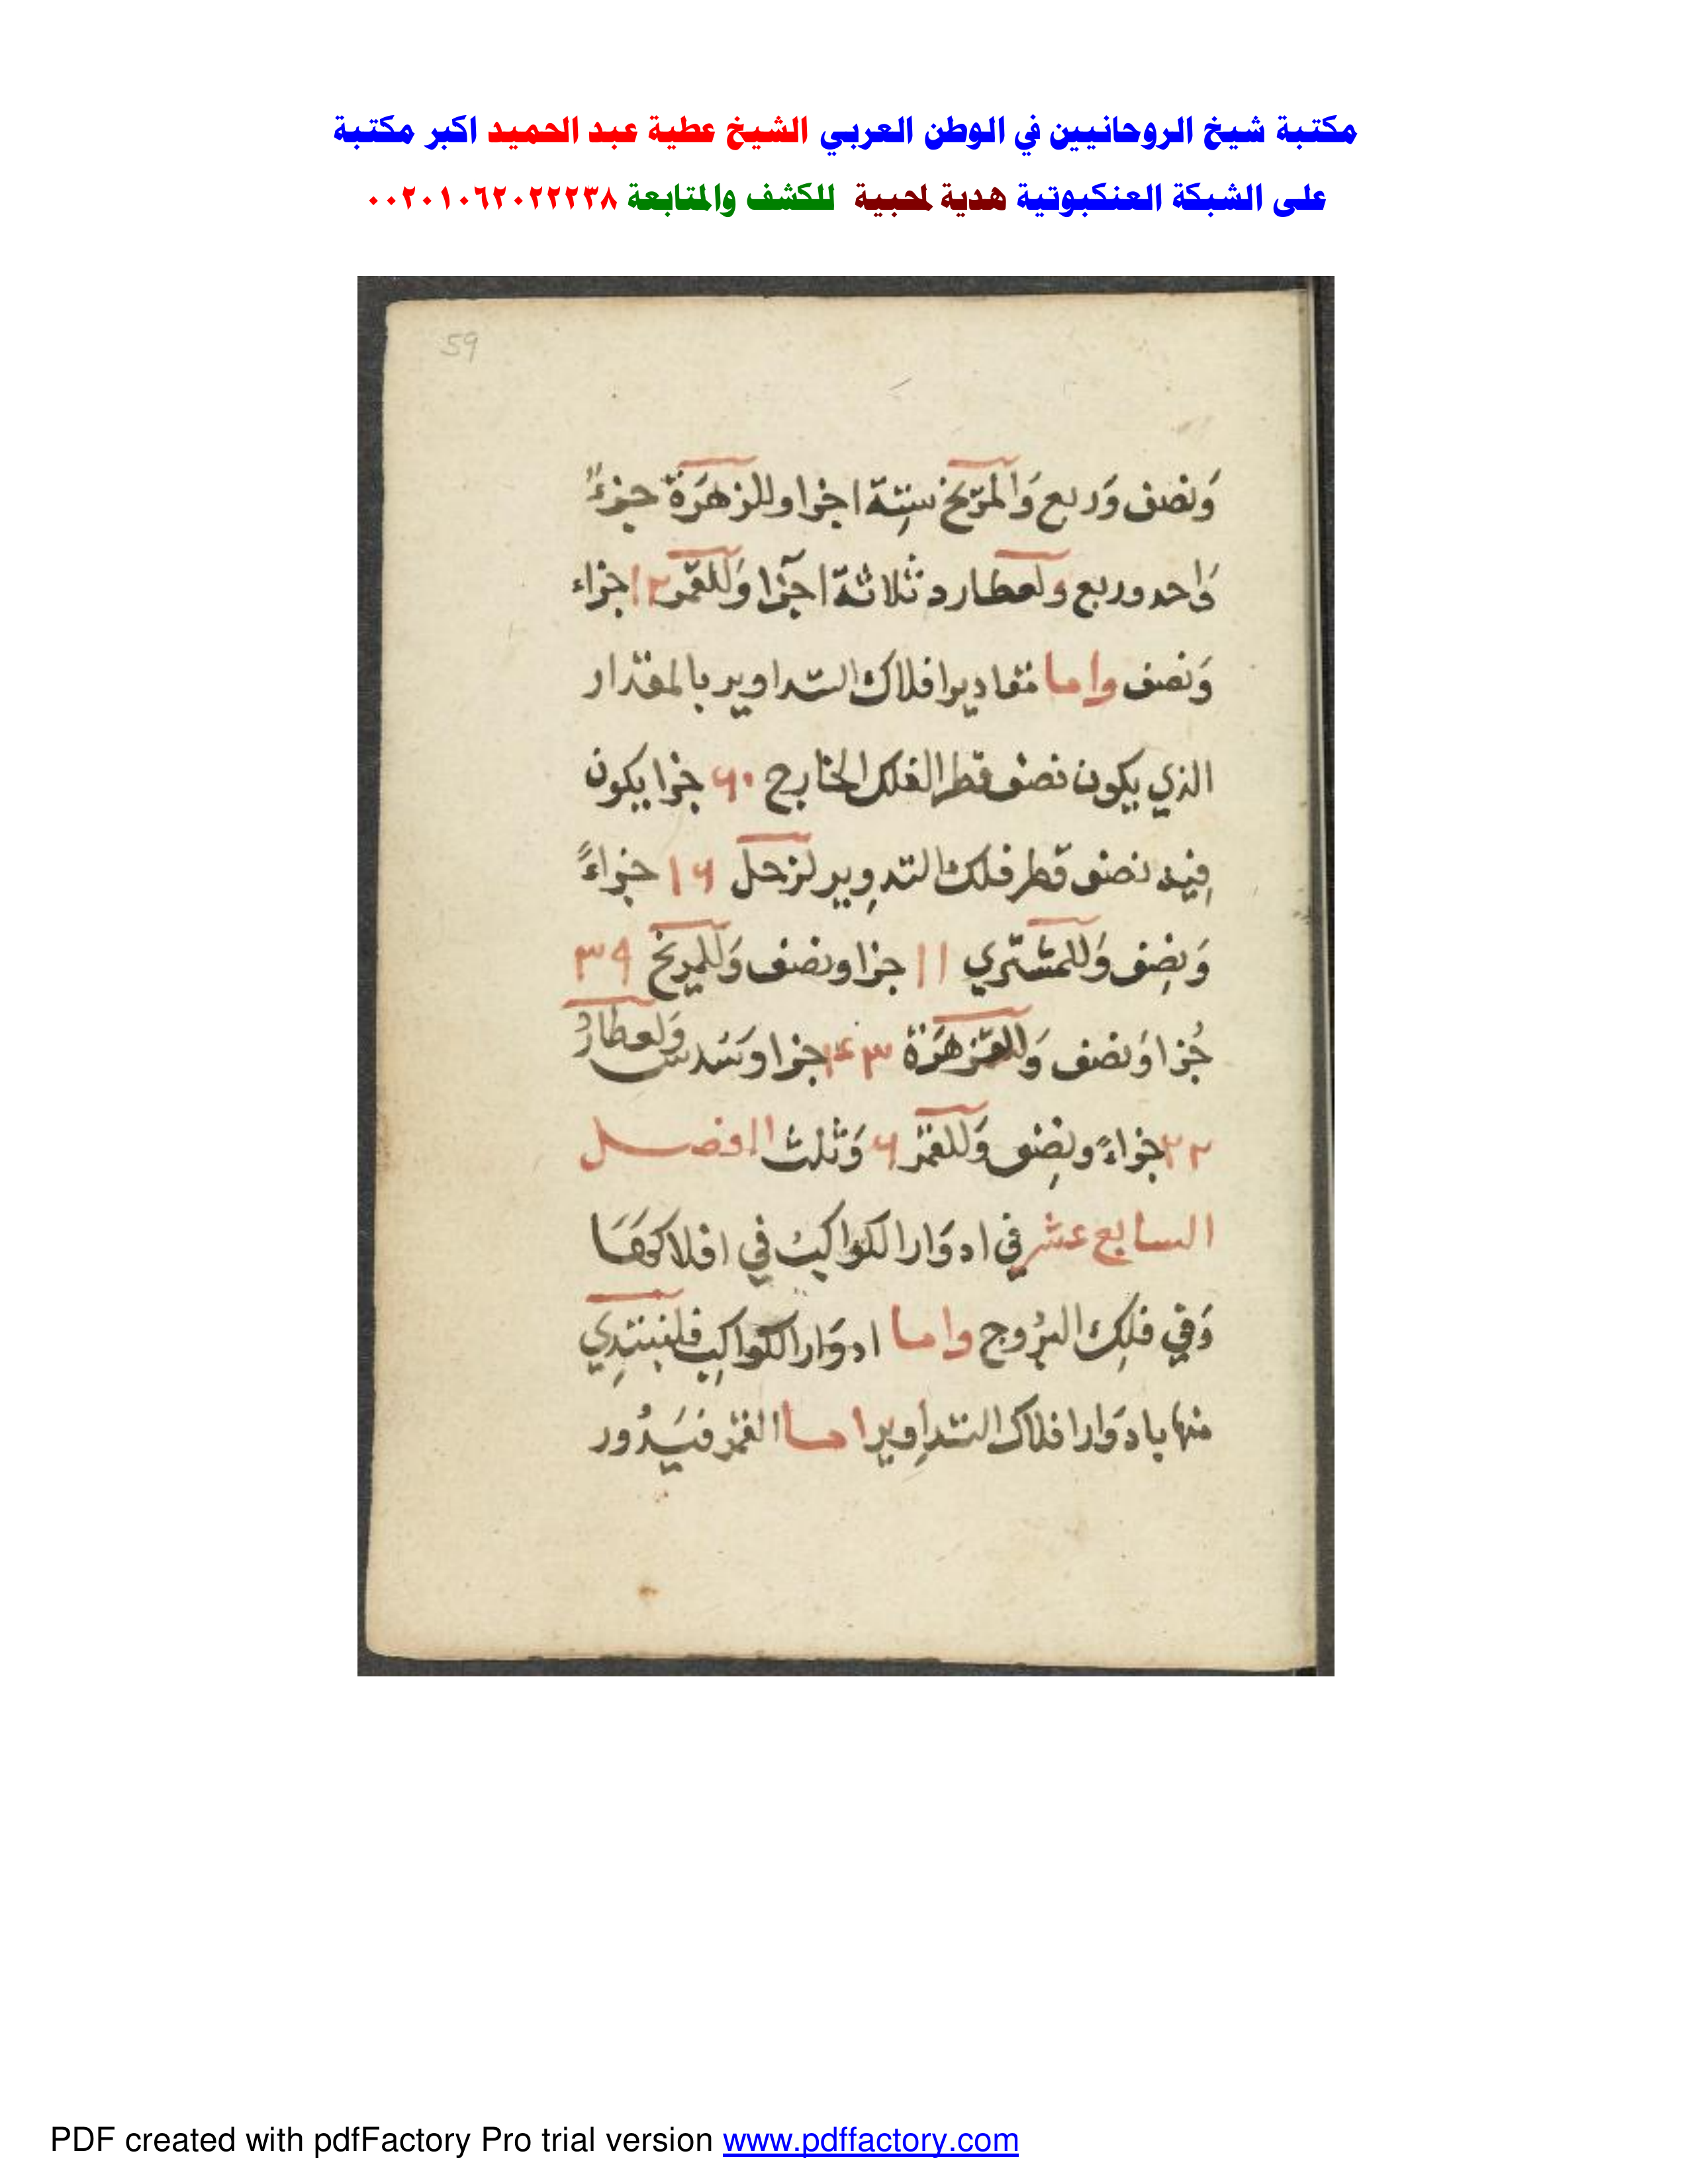 مكتبة شيخ الروحانيين في الوطن العربي الشيخ عطية عبد الحميد اكبر مكتبة
على الشبكة العنكبوتية هدية لمحبية للكشف والمتابعة ٠٠٢٠١٠٦٢٠٢٢٢٣٨
59
وَنصف وَربع وَالمرّيخ سِتة اجزا وللزهَرَة جزءً
وَاحد وربع ولعطارد ثلاثة اجزا وَللقمَر ١٢ جزاء
وَنصف واما مقادير افلاك التداوير بالمقدار
الذي يكون نصف قطر الفلك الخارج ٦٠ جزا يكون
فِيه نصف قطر فلك التدوِير لزحل ٦ ١ جزاءً
وَنِصف وَللمشتري ١١ جزا ونصف وَللمِريخ ٣٩
جُزا وَنصف وَللزهَرَة ٤٣ جزا وَسُدس وَلعطارُد
٢٢ جزاءً ونِصف وَللقمَر ٦ وَثلث الفصل
السابع عشر في ادوَار الكواكب في افلاكهَا
وَفي فلِك البرُوج واما ادوَار الكواكِب فلنبتدِي
منها بادوَار افلاك التداوِير اما القمَر فيَدُور
PDF created with pdfFactory Pro trial version www.pdffactory.com